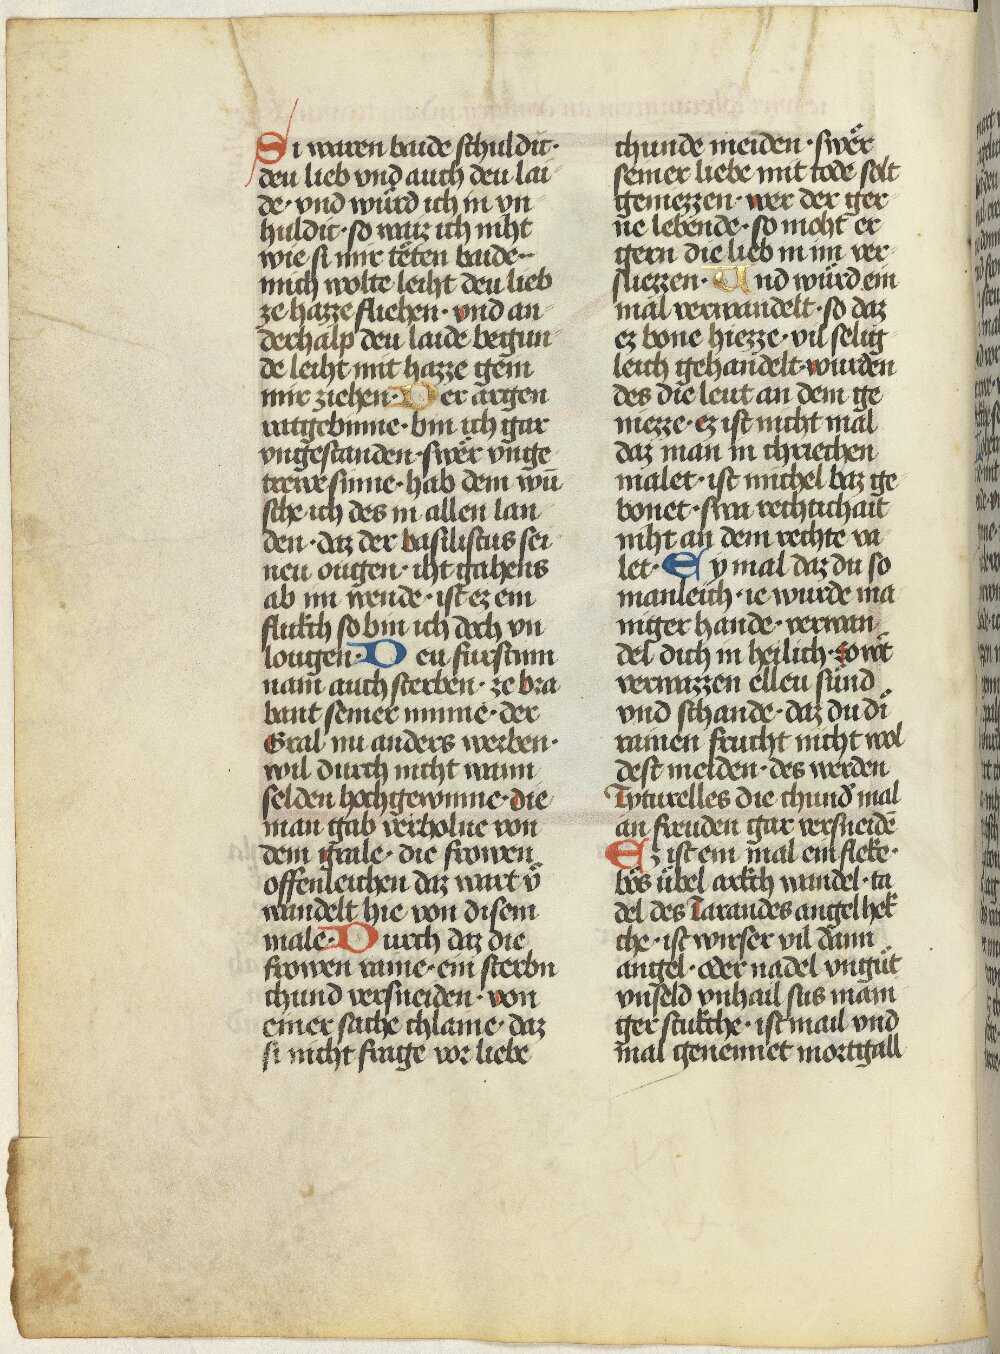 Si waren baide schuldic·
deu lieb vnd auch deu lai
de· vnd würd ich in vn
huldic· so waiz ich niht
wie si mir tëten baide·
mich wolte leiht deu lieb
ze hazze fliehen· vnd an
derhalp deu laide begun
de leiht mit hazze gein
mir ziehen· Der argen
ratgebinne· bin ich gar
vngestanden· swer vnge
trewe sinne· hab dem wū
sche ich des in allen lan
den· daz der basiliscus sei
neu ougen· iht gahens
ab im wende· ist ez ein
flukch so bin ich doch vn
lougen· Deu furstinn
nam auch sterben· ze bra
bant seiner minne· der
Gral nu anders werben·
wil durch nicht wann
selden hochgewinne· die
man gab verholne von
dem grale· die frowen
offenleichen daz wart v̄
wandelt hie von disem
male· Durch daz die
frowen raine· ein sterbn
chund versneiden· von
einer sache chlaine· daz
si nicht frage vor liebe
chunde meiden· swer
seiner liebe mit tode solt
geniezzen· wer der ger
ne lebende· so meht er
gern die lieb in im ver
sliezzen· Vnd würd ein
mal verwandelt· so daz
ez bone hiezze· vil selig
leich gehandelt· wurden
des die leut an dem ge
niezze· ez ist nicht mal
daz man in chriechen
malet· ist michel baz ge
bonet· swa rechtichait
niht an dem rechte va
let· Ey mal daz du so
manleich· ie wurde ma
niger hande· verwan
del dich in heilich· so wirt
verwazzen elleu sünd
vnd schande· daz du di
rainen frucht nicht wol
dest meiden· des werden
Tyturelles die chund mal
an freuden gar versneidē
Ez ist ein mal ein fleke·
bös übel arkch wandel· ta
del des Tarandes angel hek
che· ist wirser vil dann
angel· oder nadel vngüt
vnseld vnhail sus main
ger stukche· ist mail vnd
mal genennet mortgall